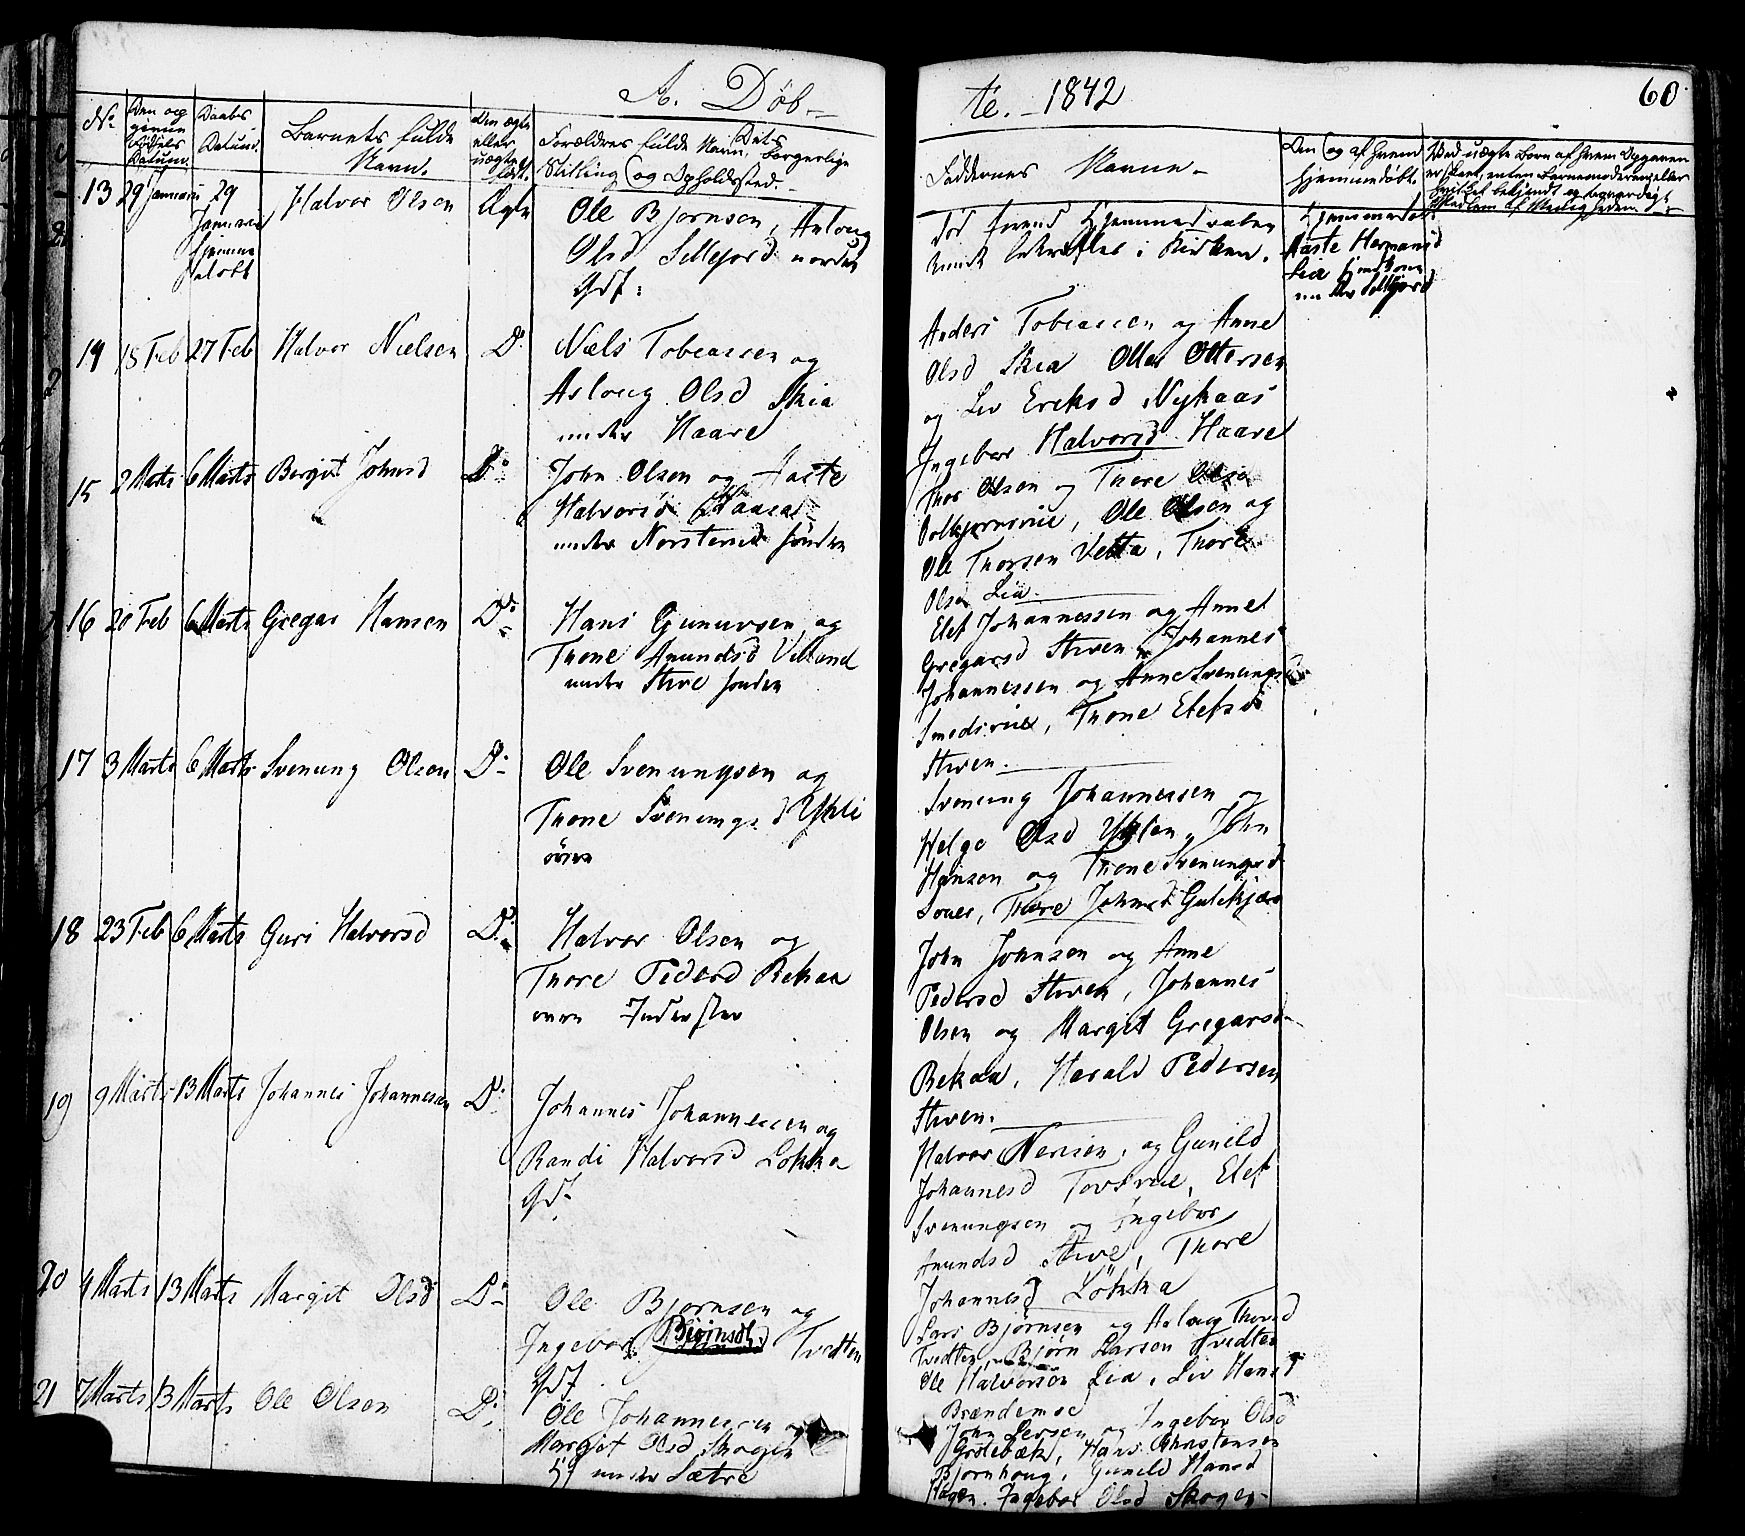 A. Døb-
te. - 1842
60
No.
Den op
givne
Fødsels
Datum.
Daabs
Datum.
Barnets fulde
Navn.
Om ægte
eller
uægte
født.
Forældres fulde Navn, Dets Borgerlige
Stilling og Opholdssted.
Faddernes Navne.
Om og af hvem
hjemmedøbt.
13 29 Januari 29
Januari
hjemme
døbt
Halvor Olsen Ægte
Ole Bjornsen, Aslaug
Olsd Sillejord nordre
Gdf:
bekræftet i Kirken.
Hjemmedøbt
Aaste Hermansd
Lia
14 18 Feb 27 Feb Halvor Nielsen Do
Niels Tobiassen og
Asloug Olsd Skia
under Haave
Anders Tobiassen og Anne
Olsd Skia Otter Ottersen
og Liv Ereksd Nyhaas
Ingebor Halvorsd Haave
15 2 Marts 6 Marts Bergit Johnsd Do
John Olsen og Aaste
Halvorsd
under Norstenrud sondre
Thor Olsen og Thore Olsd
Ole Olsen og
Ole Thorsen Vetta, Thore
Olsen Lia.
16 20 Feb 6 Marts Gregar Hansen Do
Hans Gunuvsen og
Thone Amundsd
under Stive sondre
Elef Johannessen og Anne
Gregarsd Stiven, Johannes
Johannessen og Anne Svenungsd
Smedsrue, Thone Elefsd
Stiven.
17 3 Marts 6 Marts Svenung Olsen Do
Ole Svenungsen og
Thone Svenungsd Yhli
øvre
Svenung Johannessen og
Helge Olsd, John
Hansen og Thone Svenungsd
Thore Johnsd Gulekjær
18 23 Feb 6 Marts Guri Halvorsd Do
Halvor Olsen og
Thore Pedersd Bekaa
øvre Inderster
John Johnsen og Anne
Pedersd Stiven, Johannes
Olsen og Margit Gregarsd
Bekaa, Harald Pedersen
Stiven.
19 9 Marts 13 Marts Johannes Johannesen Do
Johannes Johannessen og
Randi Halvorsd Løkka
Gdf
Halvor Nerisen, og Gunild
Johannesd Tovsrue, Elef
Svenungsen og Ingebor
Amundsd Stive, Thore
Johannesd Løkka
20 4 Marts 13 Marts Margit Olsd Do
Ole Bjornsen og
Ingebor Biørnsdtr Tvedten
Gdf.
Lars Bjørnsen og Aslaug Thorsd
Tvedten, Bjørn Larsen Tvedten
Ole Halvorsen Lia, Liv Hansd
Brændemoe
21 7 Marts 13 Marts Ole Olsen Do
Ole Johannessen og
Margit Olsd Skogen
under Sætre
John Lersen og Ingebor Olsd
Grotebæk, Hans Christensen
Bjornhoug, Gunild Hansd
Ingebor Olsd Skogen